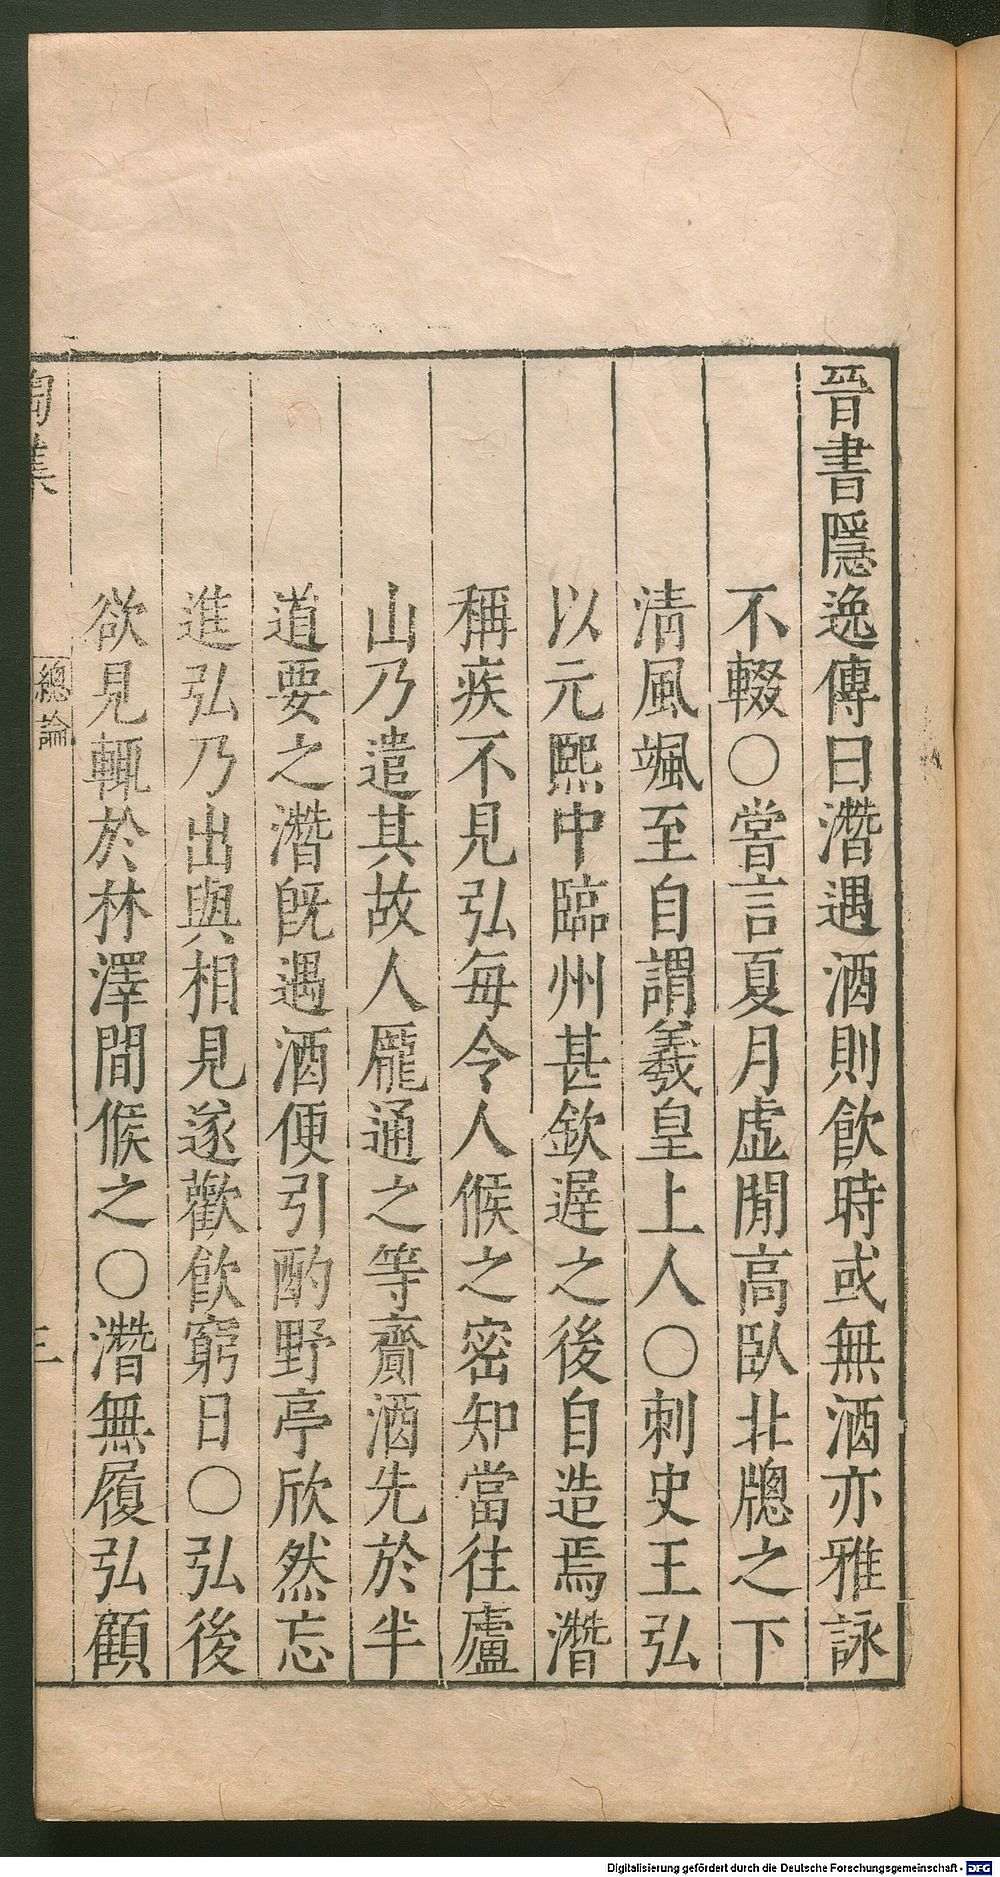 晉書隱逸傳曰潛遇酒則飲時或無酒亦雅詠
不輟○嘗言夏月虛閒高臥北牕之下
清風颯至自謂羲皇上人○刺史王弘
以元熙中臨州甚欽遲之後自造焉潛
稱疾不見弘每令人候之密知當往廬
山乃遣其故人龐通之等齎酒先於半
道要之潛旣遇酒便引酌野亭欣然忘
進弘乃出與相見遂歡飲窮日○弘後
欲見輒於林澤間候之○潛無履弘顧
陶集 總論 三
Digitalisierung gefördert durch die Deutsche Forschungsgemeinschaft - DFG